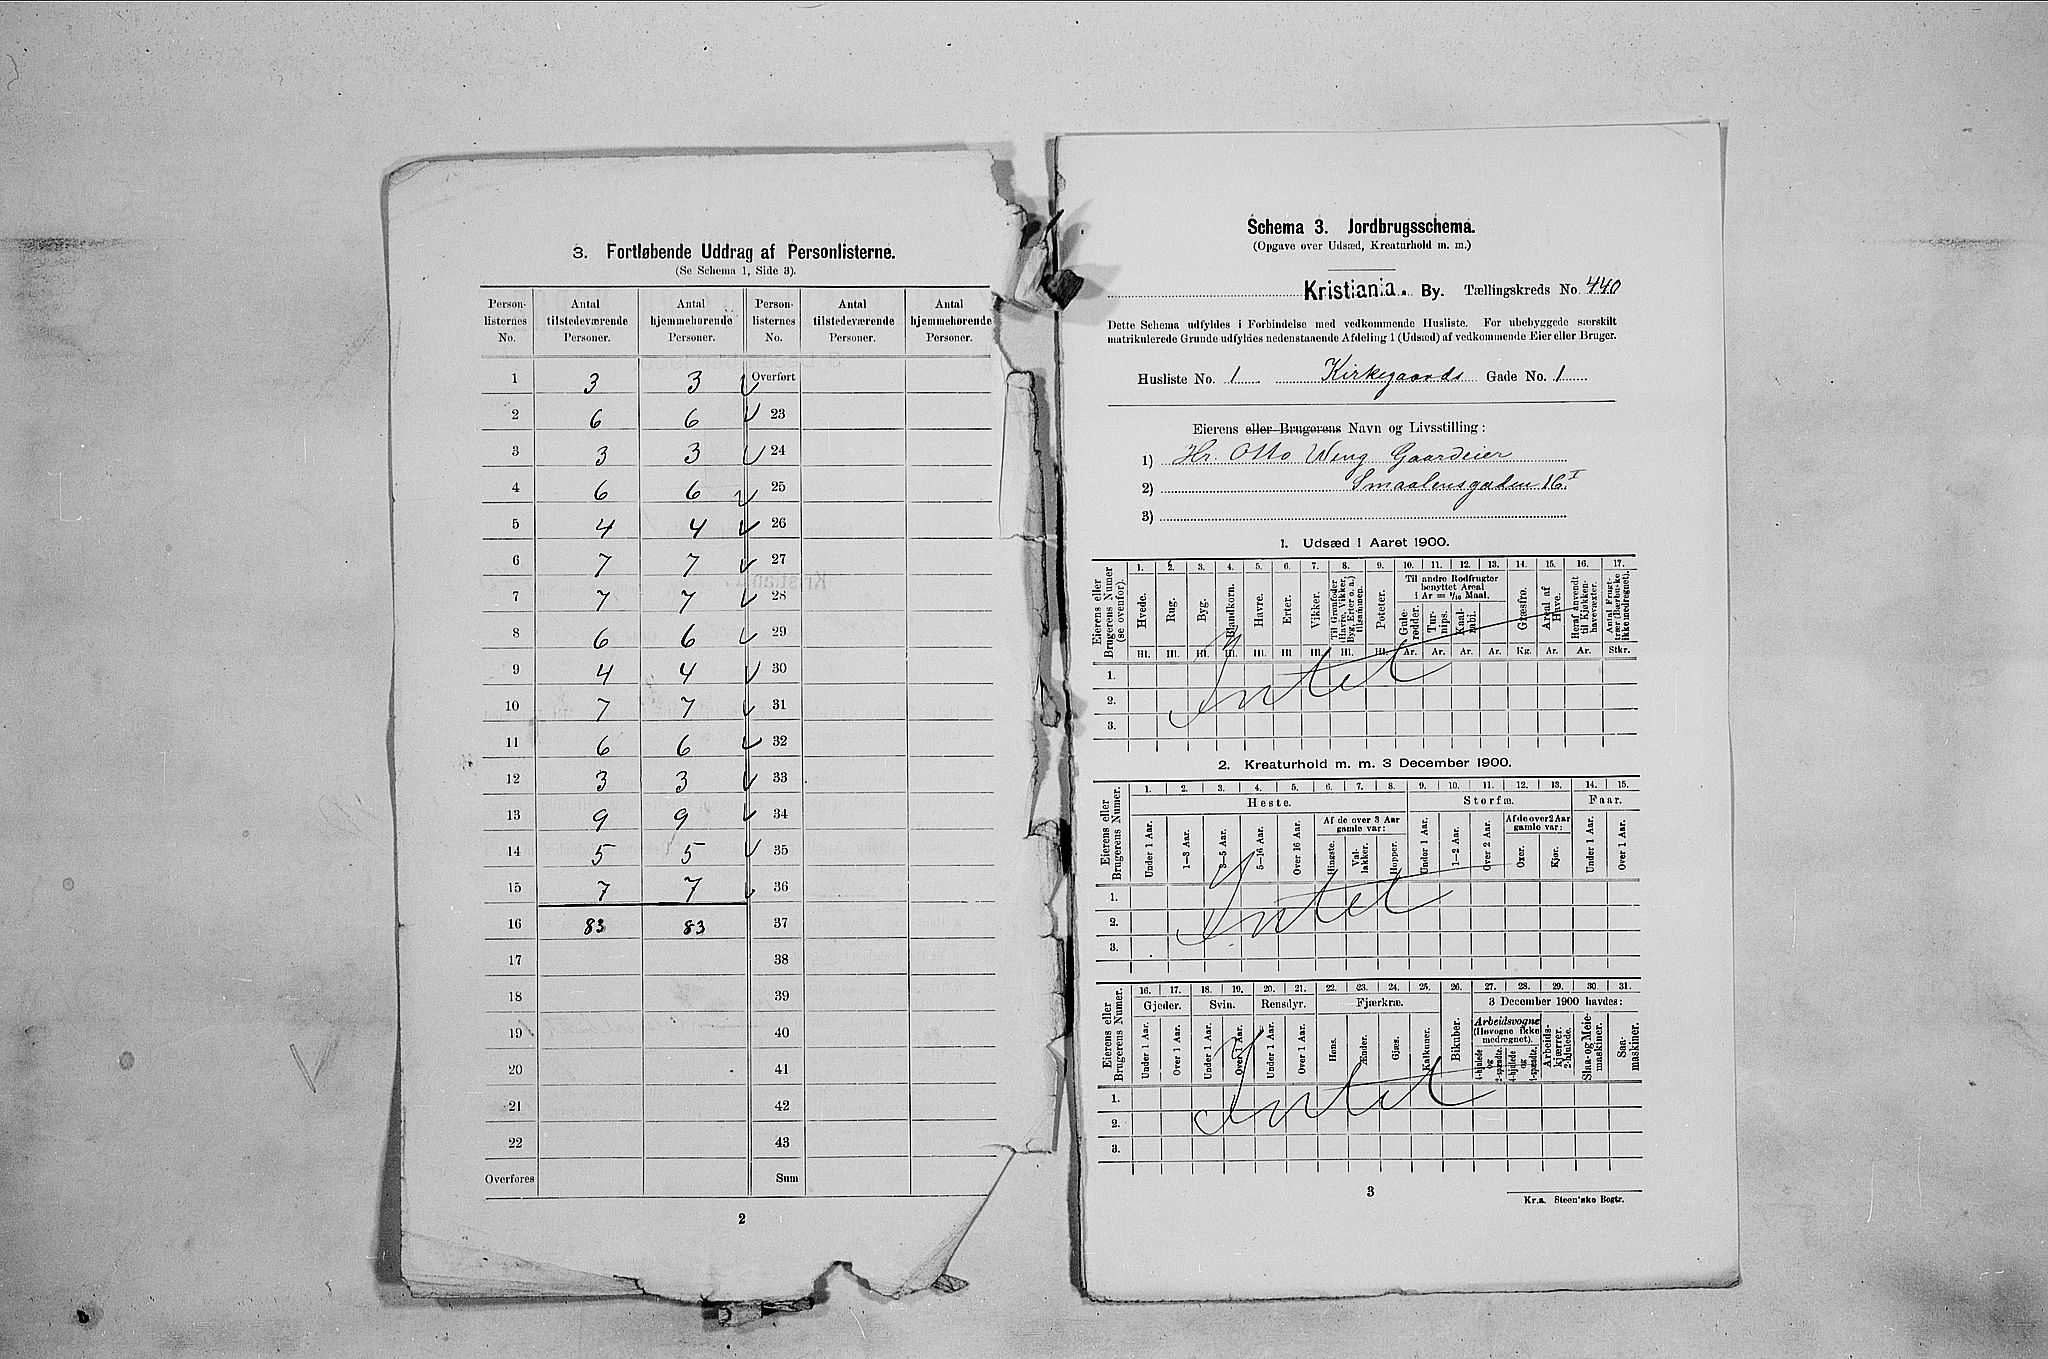 3. Fortløbende Uddrag af Personlisterne.
(Se Schema 1, Side 3).
Person-listernes No. Antal tilstedeværende Personer. Antal hjemmehørende Personer. Person-listernes No. Antal tilstedeværende Personer. Antal hjemmehørende Personer.
1 3 3 Overført
2 6 6 23
3 3 3 24
4 6 6 25
5 4 4 26
6 7 7 27
7 7 7 28
8 6 6 29
9 4 4 30
10 7 7 31
11 6 6 32
12 3 3 33
13 9 9 34
14 5 5 35
15 7 7 36
16 83 83 37
17 38
18 39
19 40
20 41
21 42
22 43
Overføres Sum
2
Schema 3. Jordbrugsschema.
(Opgave over Udsæd, Kreaturhold m. m.)
Kristiania. By. Tællingskreds No. 440
Dette Schema udfyldes i Forbindelse med vedkommende Husliste. For ubebyggede særskilt
matrikulerede Grunde udfyldes nedenstaaende Afdeling 1 (Udsæd) af vedkommende Eier eller Bruger.
Husliste No. 1 Kirkegaards Gade No. 1
Eierens eller Brugerens Navn og Livsstilling:
1) Hr. Otto Weng Gaardeier
2) Smaalensgaden 16 I
3)
1. Udsæd i Aaret 1900.
Eierens eller Brugerens Numer (se ovenfor).
1. 2. 3. 4. 5. 6. 7. 8. 9. 10. 11. 12. 13. 14. 15. 16. 17.
Hvede. Rug. Byg. Blandkorn. Havre. Erter. Vikker. Til Grønfoder (Havre, Vikker, Byg, Erter o. a.) tilsammen. Poteter.
Til andre Rodfrugter benyttet Areal i Ar = 1/10 Maal.
Gule-rødder. Tur-nips. Kaal-rabi. Græsfrø. Areal af Have. Heraf anvendt til Kjøkken-havevæxter. Antal Frugt-trær (Bærbuske ikke medregnet).
Hl. Hl. Hl. Hl. Hl. Hl. Hl. Hl. Hl. Ar. Ar. Ar. Ar. Kg. Ar. Ar. Stkr.
1.
2. Intet
3.
2. Kreaturhold m. m. 3 December 1900.
Eierens eller Brugerens Numer.
1. 2. 3. 4. 5. 6. 7. 8. 9. 10. 11. 12. 13. 14. 15.
Heste. Storfæ. Faar.
Under 1 Aar. 1—3 Aar. 3—5 Aar. 5—16 Aar. Over 16 Aar. Af de over 3 Aar gamle var: Hingste. Val-lakker. Hopper. Under 1 Aar. 1—2 Aar. Over 2 Aar. Af de over 2 Aar gamle var: Oxer. Kjør. Under 1 Aar. Over 1 Aar.
1.
2. Intet
3.
Eierens eller Brugerens Numer.
16. 17. 18. 19. 20. 21. 22. 23. 24. 25. 26. 27. 28. 29. 30. 31.
Gjeder. Svin. Rensdyr. Fjærkræ. Bikuber. 3 December 1900 havdes:
Under 1 Aar. Over 1 Aar. Under 1 Aar. Over 1 Aar. Under 1 Aar. Over 1 Aar. Høns. Ænder. Gjæs. Kalkuner. Arbeidsvogne (Høvogne ikke medregnet). 4-hjulede og 2-spændte. 4-hjulede og 1-spændte. Arbeids-kjærrer. 2-hjulede. Slaa- og Meie-maskiner. Saa-maskiner.
1.
2. Intet
3.
3
Kr.a. Steen'ske Bogtr.